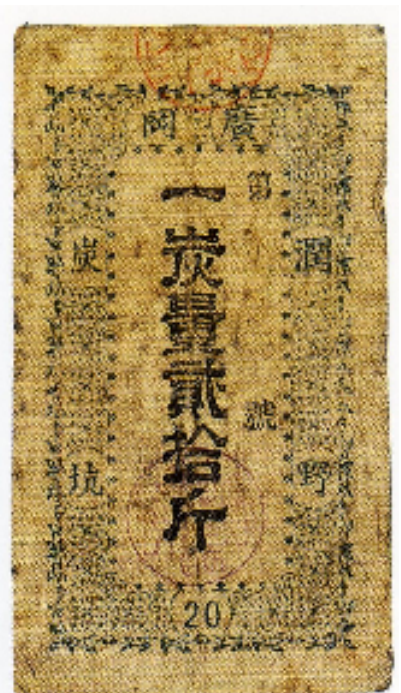 廣岡
潤野
第 號
一炭量貳拾斤
炭坑
20